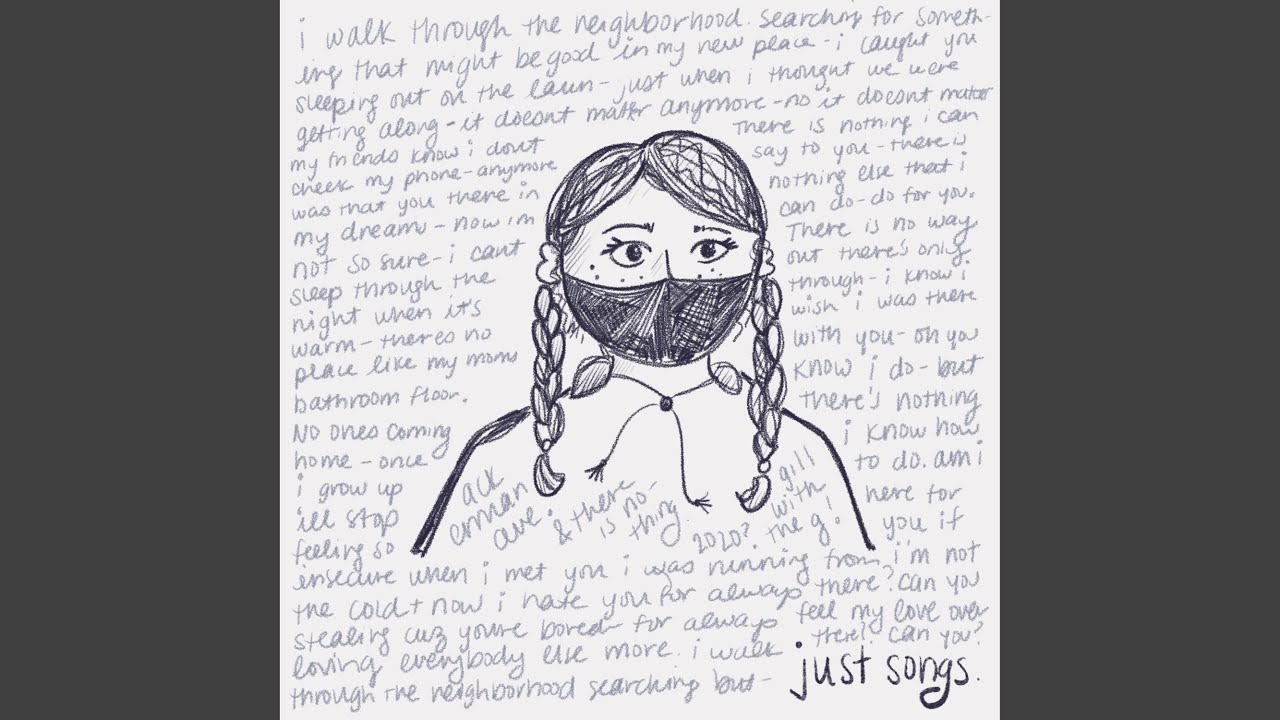 i walk through the neighborhood. searching for someth-
ing that might be good in my new place - i caught you
sleeping out on the lawn - just when i thought we were
getting along - it doesnt matter anymore - no it doesnt matter
my friends know i dont
check my phone - anymore
was that you there in
my dreams - now im
not so sure - i cant
sleep through the
night when it's
warm - theres no
place like my moms
bathroom floor.
No ones coming
home - once
i grow up
ill stop
feeling so
insecure when i met you i was running from
the cold + now i hate you for always
stealing cuz you're bored - for always
loving everybody else more. i walk
through the neighborhood searching but -
There is nothing i can
say to you - there is
nothing else that i
can do - do for you.
There is no way
out there's only
through - i know i
wish i was there
with you - oh you
know i do - but
there's nothing
i know how
to do. am i
here for
you if
i'm not
there? can you
feel my love over
there? can you?
ack
erman
ave.
& there
is no-
thing.
2020?
gill
with
the g!
just songs.